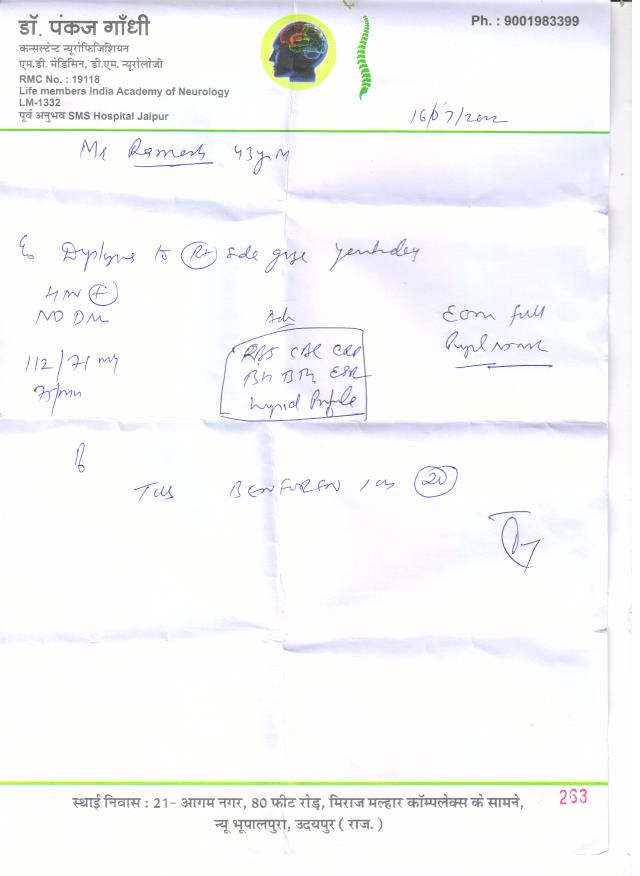 डॉ. पंकज गाँधी
कन्सल्टेन्ट न्यूरोफिजिशियन
एम.डी. मेडिसिन, डी.एम. न्यूरोलॉजी
RMC No. : 19118
Life members India Academy of Neurology
LM-1332
पूर्व अनुभव SMS Hospital Jaipur
Ph. : 9001983399
Mr Ramesh 43yr M
to Rt side gaze yesterday
HTN +
NO DM
112/71
Adv
RBS CBC
ESR
Lipid Profile
EOM full
Pupil
BENFOREN 20
स्थाई निवास : 21- आगम नगर, 80 फीट रोड़, मिराज मल्हार कॉम्पलेक्स के सामने,
न्यू भूपालपुरा, उदयपुर ( राज. )
263